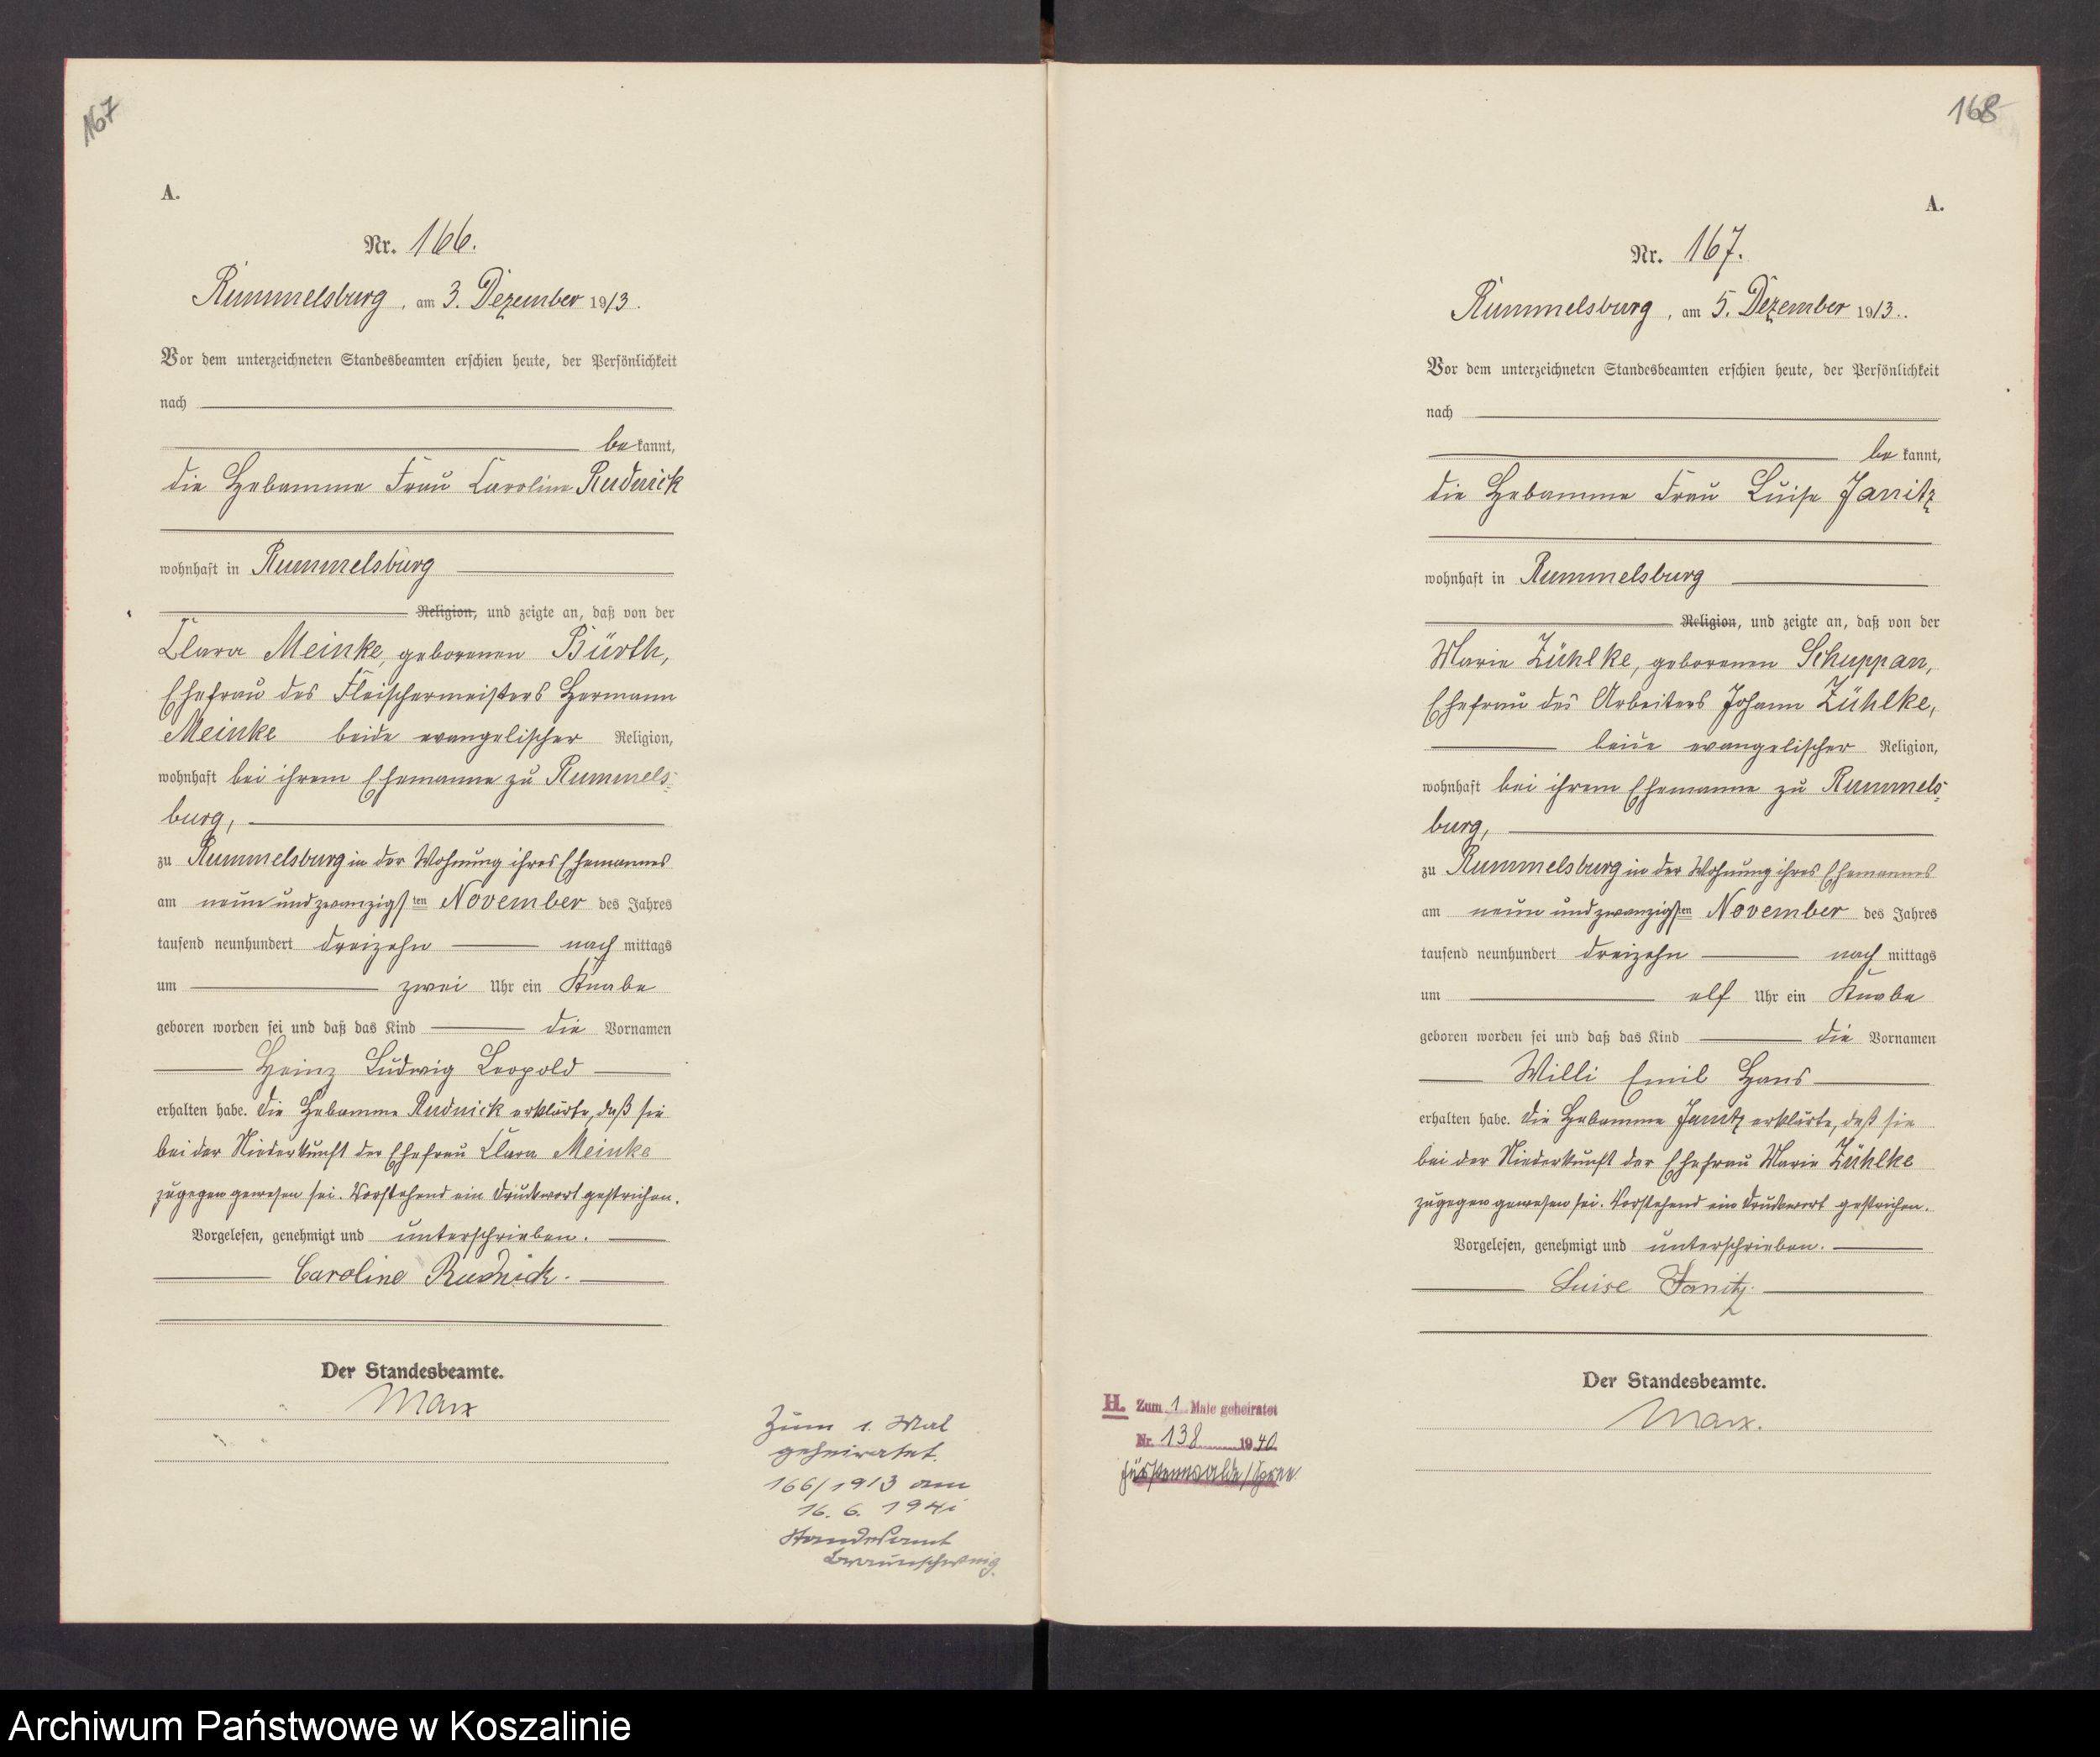 167
A.
Nr. 166.
Rummelsburg, am 3. Dezember 1913.
Vor dem unterzeichneten Standesbeamten erschien heute, der Persönlichkeit
nach
be kannt,
die Hebamme Frau Caroline Rudnick
wohnhaft in Rummelsburg
Religion, und zeigte an, daß von der
Clara Meinke, geborenen Bürth,
Ehefrau des Fleischermeisters Hermann
Meinke beide evangelischer Religion,
wohnhaft bei ihrem Ehemanne zu Rummels-
burg,
zu Rummelsburg in der Wohnung ihres Ehemannes
am neunundzwanzigsten November des Jahres
tausend neunhundert dreizehn nach mittags
um zwei Uhr ein Knabe
geboren worden sei und daß das Kind die Vornamen
Heinz Ludwig Leopold
erhalten habe. Die Hebamme Rudnick erklärte, daß sie
bei der Niederkunft der Ehefrau Clara Meinke
zugegen gewesen sei. Vorstehend ein Druckwort gestrichen.
Vorgelesen, genehmigt und unterschrieben.
Caroline Rudnick.
Der Standesbeamte.
Marx
Zum 1. Mal
geheiratet.
166/1913 am
16. 6. 1941
Standesamt
Braunschweig.
168
A.
Nr. 167.
Rummelsburg, am 5. Dezember 1913.
Vor dem unterzeichneten Standesbeamten erschien heute, der Persönlichkeit
nach
be kannt,
die Hebamme Frau Luise Janitz
wohnhaft in Rummelsburg
Religion, und zeigte an, daß von der
Marie Zühlke, geborenen Schuppan,
Ehefrau des Arbeiters Johann Zühlke,
beide evangelischer Religion,
wohnhaft bei ihrem Ehemanne zu Rummels-
burg,
zu Rummelsburg in der Wohnung ihres Ehemannes
am neunundzwanzigsten November des Jahres
tausend neunhundert dreizehn nach mittags
um elf Uhr ein Knabe
geboren worden sei und daß das Kind die Vornamen
Willi Emil Hans
erhalten habe. Die Hebamme Janitz erklärte, daß sie
bei der Niederkunft der Ehefrau Marie Zühlke
zugegen gewesen sei. Vorstehend ein Druckwort gestrichen.
Vorgelesen, genehmigt und unterschrieben.
Luise Janitz.
Der Standesbeamte.
Marx.
H. Zum 1 Male geheiratet
Nr. 138 1940
Fürstenwalde/Spree
Archiwum Państwowe w Koszalinie